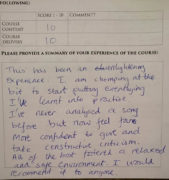 FOLLOWING)
SCORE: /10 COMMENT?
COURSE CONTENT 10
COURSE DELIVERY 10
PLEASE PROVIDE A SUMMARY OF YOUR EXPERIENCE OF THE COURSE:
This has been an enlightening
experience. I am chomping at the
bit to start putting everything
I've learnt into practice
I've never analysed a song
before but now feel far
more confident to give and
take constructive critisism.
All of the host fostered a relaxed
and safe environment. I would
recommend it to anyone.